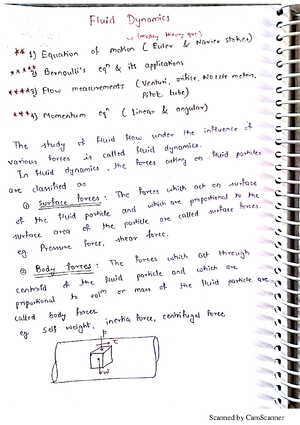 Fluid Dynamics
(mostly theory ques)
** 1) Equation of motion (Euler & Navier stokes)
***** 2) Bernoulli's eqⁿ & its applications
**** 3) Flow measurements (Venturi, orifice, Nozzle meters,
Pitot tube)
**** 4) Momentum eqⁿ (linear & angular)
The study of fluid flow under the influence of
various forces is called fluid dynamics.
In fluid dynamics, the forces acting on fluid particles
are classified as
① Surface forces: The forces which act on surface
of the fluid particle and which are proportional to the
surface area of the particle are called surface forces.
eg Pressure force, shear force.
② Body forces: The forces which act through
centroid of the fluid particle and which are
proportional to volᵐ or mass of the fluid particle are
called body forces
eg self weight, inertia force, centrifugal force
P
τ
W
Scanned by CamScanner